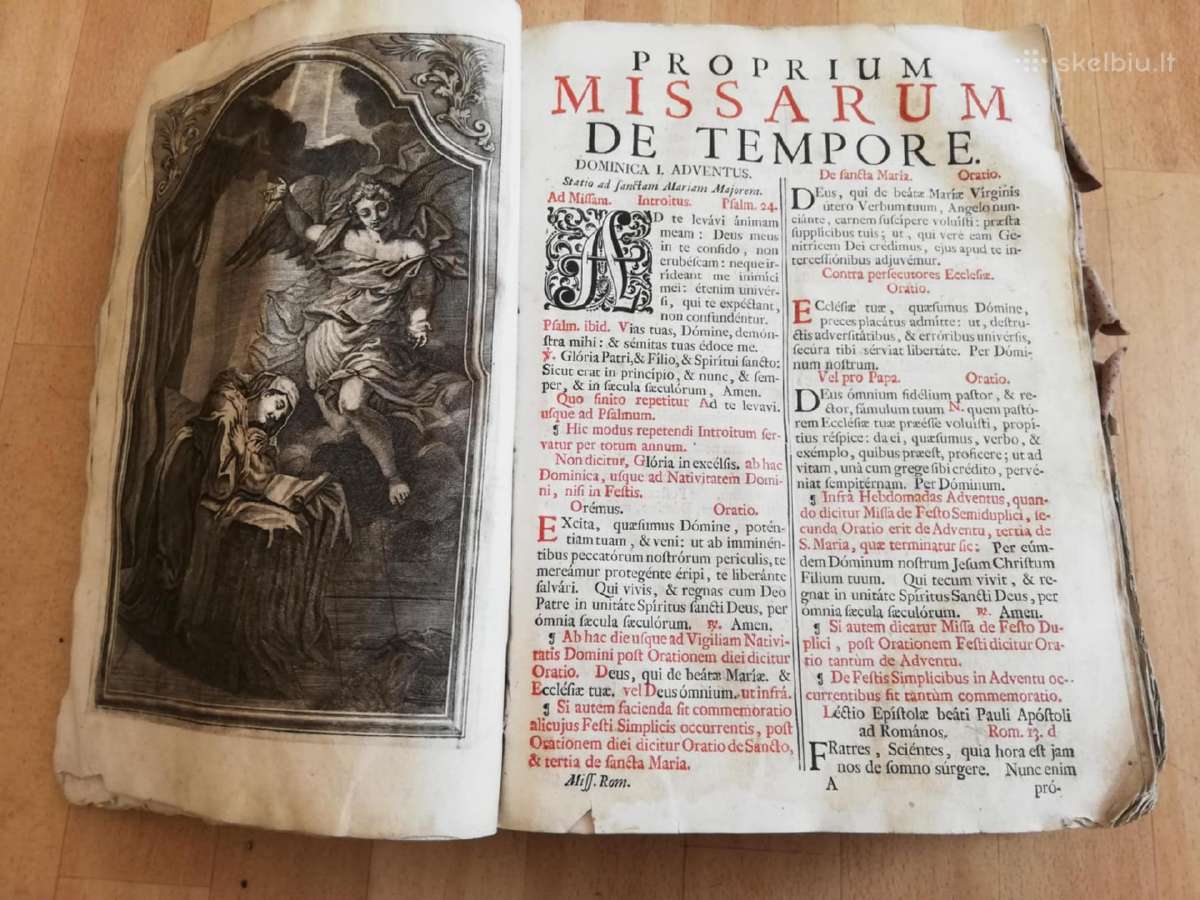 skelbiu.lt
PROPRIUM
MISSARUM
DE TEMPORE.
DOMINICA I. ADVENTUS.
Statio ad ſanctam Mariam Majorem.
Ad Miſſam. Introitus. Pſalm. 24.
AD te levávi ánimam
meam: Deus meus
in te confido, non
erubéſcam: neque ir-
rídeant me inimíci
mei: étenim univér-
ſi, qui te expéctant,
non confundéntur.
Pſalm. ibid. Vias tuas, Dómine, demón-
ſtra mihi: & ſémitas tuas édoce me.
℣. Glória Patri, & Fílio, & Spirítui ſancto:
Sicut erat in princípio, & nunc, & ſem-
per, & in ſæcula ſæculórum, Amen.
Quo finito repetitur Ad te levavi.
uſque ad Pſalmum.
¶ Hic modus repetendi Introitum ſer-
vatur per totum annum.
Non dicitur, Glória in excélſis. ab hac
Dominica, uſque ad Nativitatem Domi-
ni, niſi in Feſtis.
Orémus. Oratio.
EXcita, quæſumus Dómine, potén-
tiam tuam, & veni: ut ab imminén-
tibus peccatórum noſtrórum perículis, te
mereámur protegénte éripi, te liberánte
ſalvári. Qui vivis, & regnas cum Deo
Patre in unitáte Spíritus ſancti Deus, per
ómnia ſæcula ſæculórum. ℟. Amen.
¶ Ab hac die uſque ad Vigiliam Nativi-
tatis Domini poſt Orationem diei dicitur
Oratio. Deus, qui de beátæ Maríæ. &
Eccléſiæ tuæ. vel Deus ómnium. ut infrá.
¶ Si autem facienda ſit commemoratio
alicujus Feſti Simplicis occurrentis, poſt
Orationem diei dicitur Oratio de Sancto,
& tertia de ſancta Maria.
Miſſ. Rom.
De ſancta Maria. Oratio.
DEus, qui de beátæ Maríæ Vírginis
útero Verbum tuum, Angelo nun-
ciánte, carnem ſuſcípere voluíſti: præſta
ſupplícibus tuis; ut, qui vere eam Ge-
nitrícem Dei crédimus, ejus apud te in-
terceſſiónibus adjuvémur.
Contra perſecutores Eccleſiæ.
Oratio.
ECcléſiæ tuæ, quæſumus Dómine,
preces placátus admítte: ut, deſtrú-
ctis adverſitátibus, & erróribus univérſis,
ſecúra tibi ſérviat libertáte. Per Dómi-
num noſtrum.
Vel pro Papa. Oratio.
DEus ómnium fidélium paſtor, & re-
ctor, fámulum tuum N. quem paſtó-
rem Eccléſiæ tuæ præéſſe voluíſti, propí-
tius réſpice: da ei, quæſumus, verbo, &
exémplo, quibus præeſt, profícere; ut ad
vitam, unà cum grege ſibi crédito, pervé-
niat ſempitérnam. Per Dóminum.
¶ Infrá Hebdomadas Adventus, quan-
do dicitur Miſſa de Feſto Semiduplici, ſe-
cunda Oratio erit de Adventu, tertia de
S. Maria, quæ terminatur ſic: Per eúm-
dem Dóminum noſtrum Jeſum Chriſtum
Fílium tuum. Qui tecum vivit, & re-
gnat in unitáte Spíritus Sancti Deus, per
ómnia ſæcula ſæculórum. ℟. Amen.
¶ Si autem dicatur Miſſa de Feſto Du-
plici, poſt Orationem Feſti dicitur Ora-
tio tantùm de Adventu.
¶ De Feſtis Simplicibus in Adventu oc-
currentibus fit tantùm commemoratio.
Léctio Epíſtolæ beáti Pauli Apóſtoli
ad Romános. Rom. 13. d
FRatres, Sciéntes, quia hora eſt jam
nos de ſomno ſúrgere. Nunc enim
A pró-